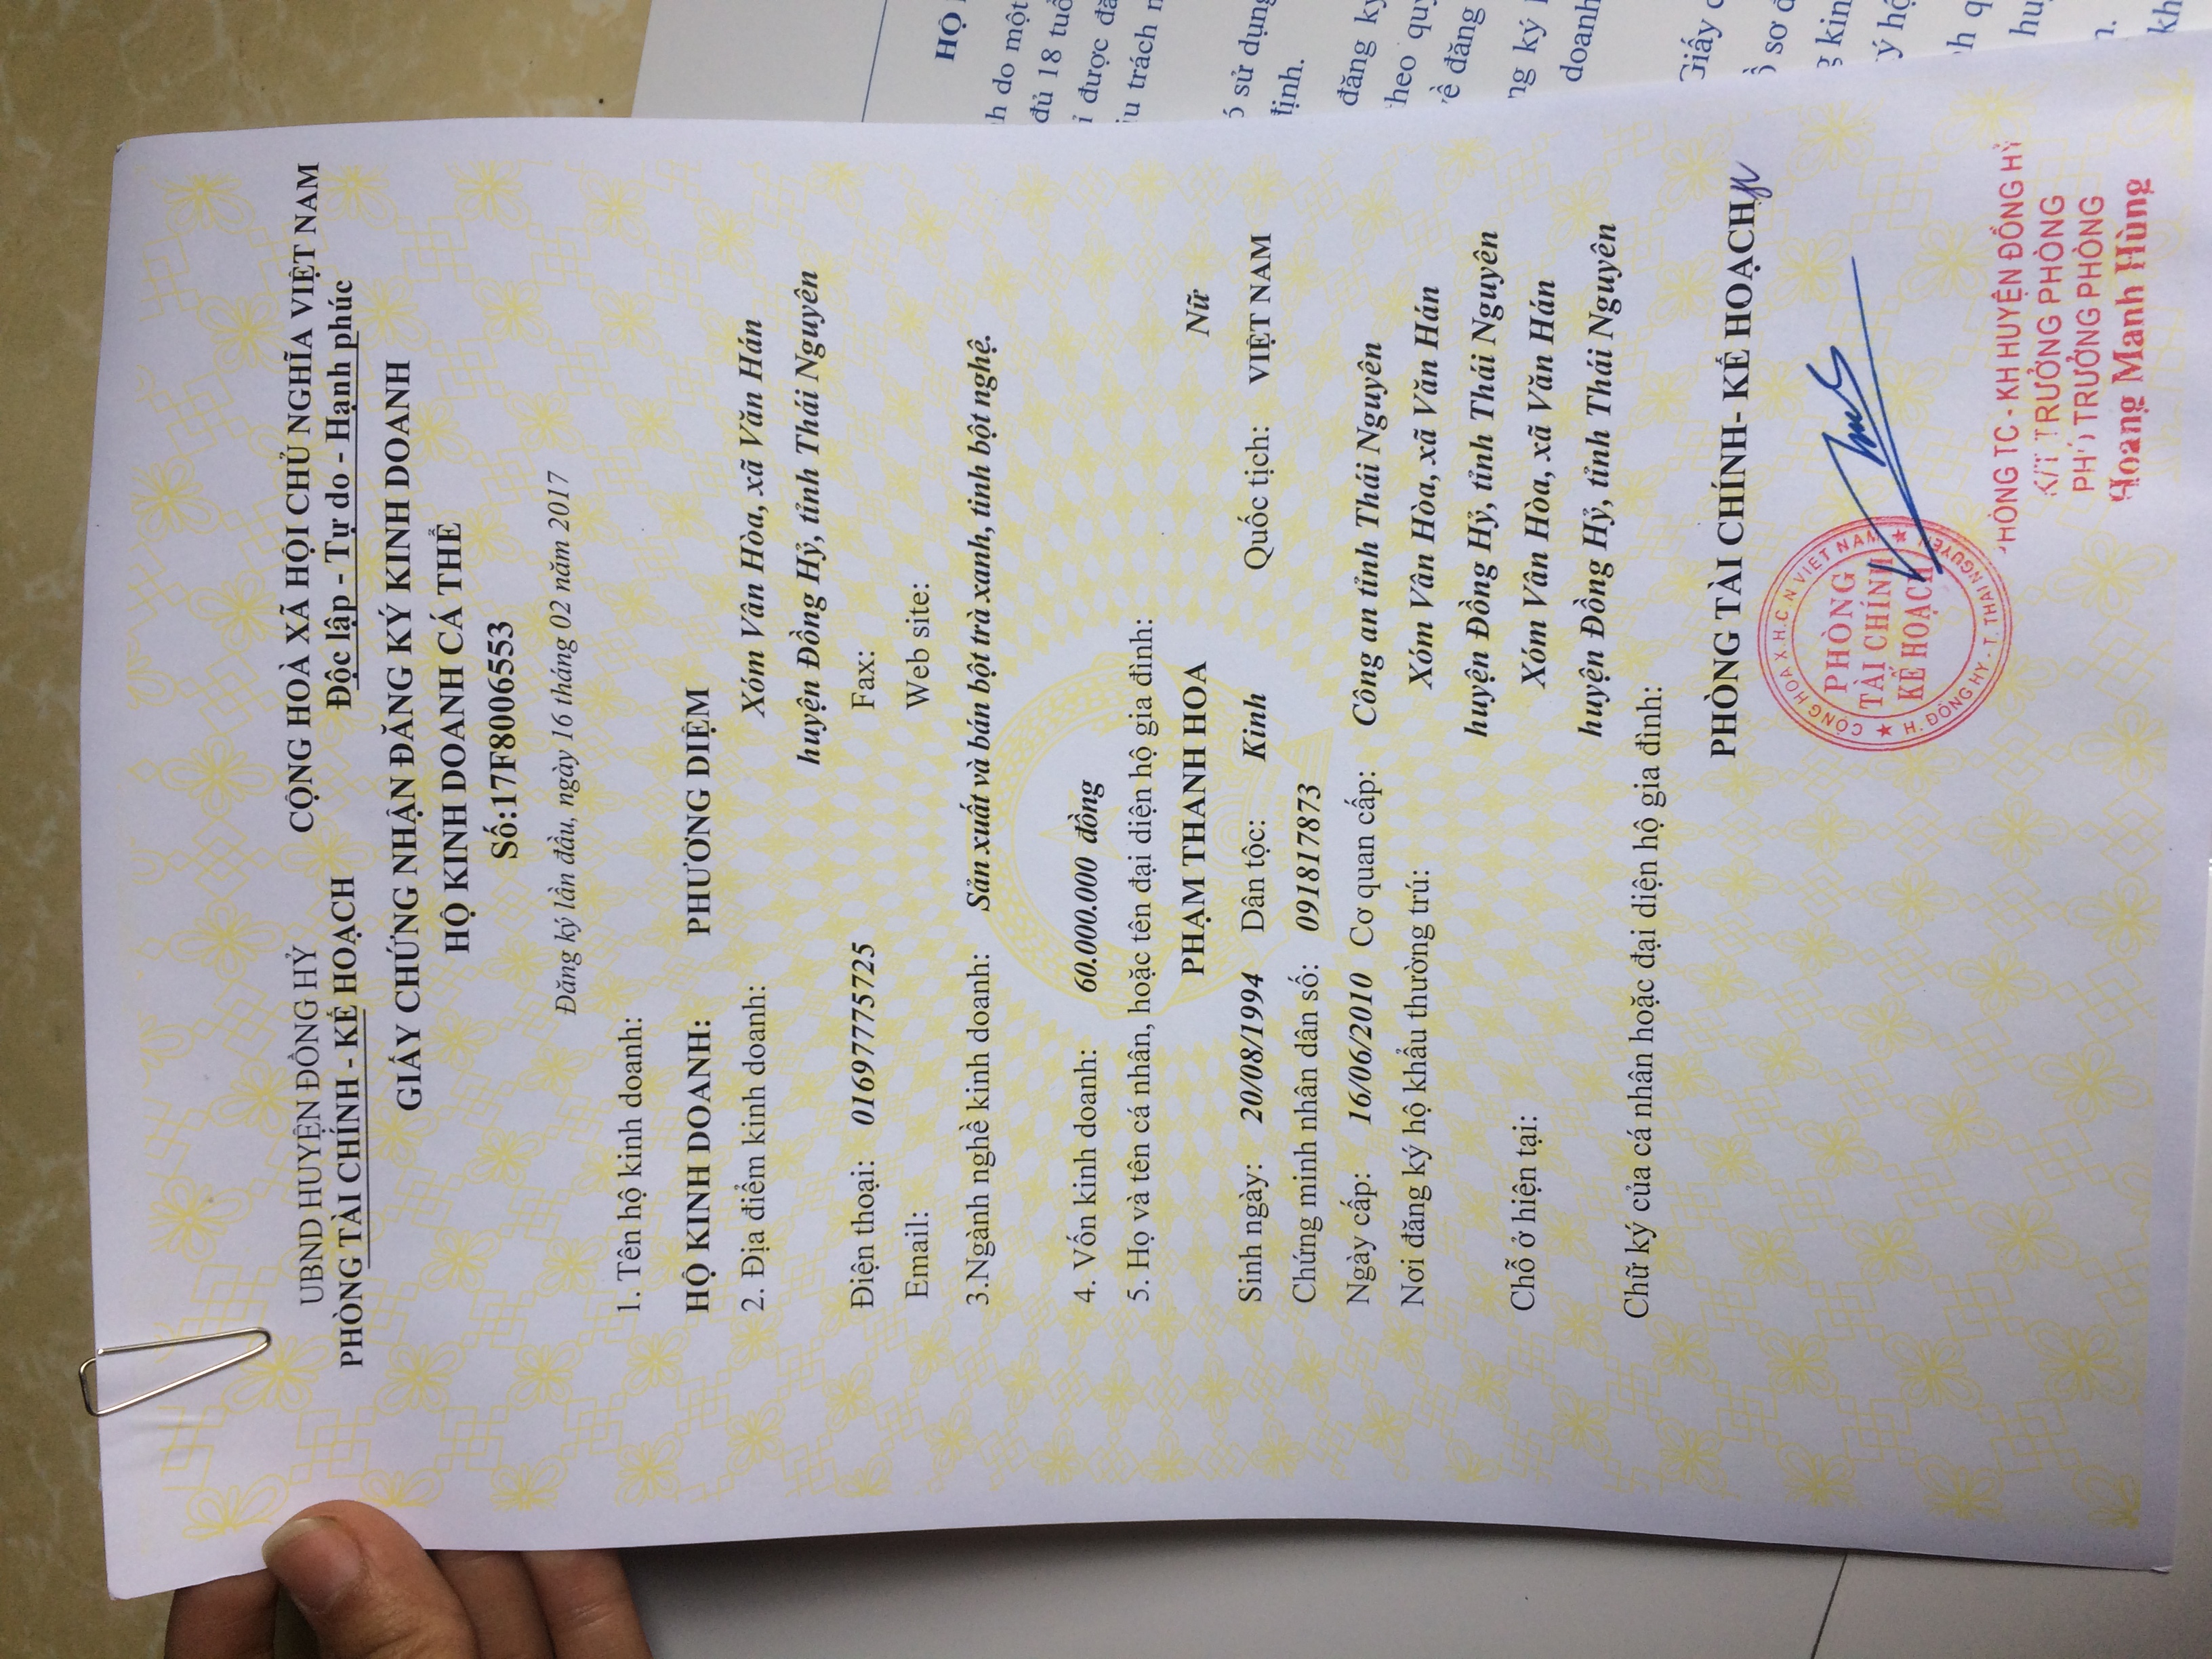 UBND HUYỆN ĐỒNG HỶ
PHÒNG TÀI CHÍNH - KẾ HOẠCH
CỘNG HOÀ XÃ HỘI CHỦ NGHĨA VIỆT NAM
Độc lập - Tự do - Hạnh phúc
GIẤY CHỨNG NHẬN ĐĂNG KÝ KINH DOANH
HỘ KINH DOANH CÁ THỂ
Số:17F8006553
Đăng ký lần đầu, ngày 16 tháng 02 năm 2017
1. Tên hộ kinh doanh:
HỘ KINH DOANH: PHƯƠNG DIỆM
2. Địa điểm kinh doanh: Xóm Vân Hòa, xã Văn Hán
huyện Đồng Hỷ, tỉnh Thái Nguyên
Điện thoại: 01697775725 Fax:
Email: Web site:
3.Ngành nghề kinh doanh: Sản xuất và bán bột trà xanh, tinh bột nghệ.
4. Vốn kinh doanh: 60.000.000 đồng
5. Họ và tên cá nhân, hoặc tên đại diện hộ gia đình:
PHẠM THANH HOA Nữ
Sinh ngày: 20/08/1994 Dân tộc: Kinh Quốc tịch: VIỆT NAM
Chứng minh nhân dân số: 091817873
Ngày cấp: 16/06/2010 Cơ quan cấp: Công an tỉnh Thái Nguyên
Nơi đăng ký hộ khẩu thường trú: Xóm Vân Hòa, xã Văn Hán
huyện Đồng Hỷ, tỉnh Thái Nguyên
Chỗ ở hiện tại: Xóm Vân Hòa, xã Văn Hán
huyện Đồng Hỷ, tỉnh Thái Nguyên
Chữ ký của cá nhân hoặc đại diện hộ gia đình:
PHÒNG TÀI CHÍNH- KẾ HOẠCH
CỘNG HOÀ X.H.C.N VIỆT NAM
PHÒNG
TÀI CHÍNH
KẾ HOẠCH
H. ĐỒNG HỶ - T. THÁI NGUYÊN
PHÒNG TC - KH HUYỆN ĐỒNG HỶ
K/T TRƯỞNG PHÒNG
PHÓ TRƯỞNG PHÒNG
Hoàng Mạnh Hùng
HỘ
do một
đủ 18 tuổi
được
trách
sử dụng
định.
đăng ký
theo quy
về đăng
ký
doanh
Giấy
sơ
kinh
ý hộ